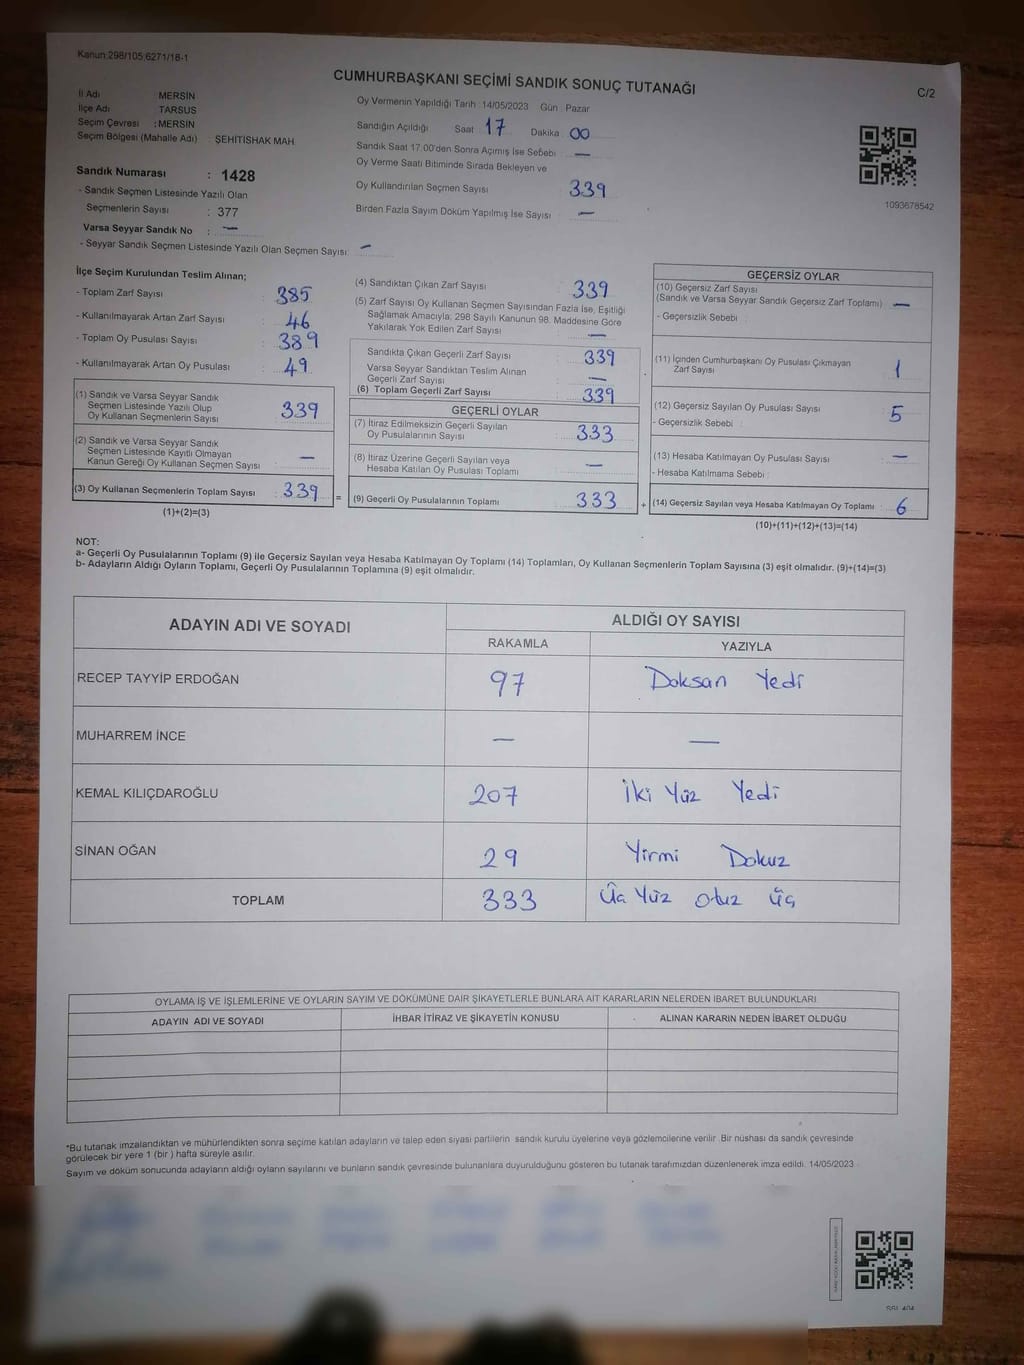 Kanun:298/105;6271/18-1
CUMHURBAŞKANI SEÇİMİ SANDIK SONUÇ TUTANAĞI
C/2
İl Adı : MERSİN
İlçe Adı : TARSUS
Seçim Çevresi : MERSİN
Seçim Bölgesi (Mahalle Adı) : ŞEHİTİSHAK MAH
Sandık Numarası : 1428
- Sandık Seçmen Listesinde Yazılı Olan
Seçmenlerin Sayısı : 377
Varsa Seyyar Sandık No : —
- Seyyar Sandık Seçmen Listesinde Yazılı Olan Seçmen Sayısı: —
Oy Vermenin Yapıldığı Tarih :14/05/2023 Gün Pazar
Sandığın Açıldığı Saat 17 Dakika 00
Sandık Saat 17:00'den Sonra Açımış İse Sebebi : —
Oy Verme Saati Bitiminde Sırada Bekleyen ve
Oy Kullandırılan Seçmen Sayısı 339
Birden Fazla Sayım Döküm Yapılmış İse Sayısı : —
1093678542
İlçe Seçim Kurulundan Teslim Alınan;
- Toplam Zarf Sayısı : 385
- Kullanılmayarak Artan Zarf Sayısı : 46
- Toplam Oy Pusulası Sayısı : 389
- Kullanılmayarak Artan Oy Pusulası : 49
(1) Sandık ve Varsa Seyyar Sandık
Seçmen Listesinde Yazılı Olup
Oy Kullanan Seçmenlerin Sayısı : 339
(2) Sandık ve Varsa Seyyar Sandık
Seçmen Listesinde Kayıtlı Olmayan
Kanun Gereği Oy Kullanan Seçmen Sayısı : —
(3) Oy Kullanan Seçmenlerin Toplam Sayısı : 339 =
(1)+(2)=(3)
(4) Sandıktan Çıkan Zarf Sayısı : 339
(5) Zarf Sayısı Oy Kullanan Seçmen Sayısından Fazla İse, Eşitliği
Sağlamak Amacıyla; 298 Sayılı Kanunun 98. Maddesine Göre
Yakılarak Yok Edilen Zarf Sayısı : —
Sandıkta Çıkan Geçerli Zarf Sayısı : 339
Varsa Seyyar Sandıktan Teslim Alınan
Geçerli Zarf Sayısı : —
(6) Toplam Geçerli Zarf Sayısı : 339
GEÇERLİ OYLAR
(7) İtiraz Edilmeksizin Geçerli Sayılan
Oy Pusulalarının Sayısı : 333
(8) İtiraz Üzerine Geçerli Sayılan veya
Hesaba Katılan Oy Pusulası Toplamı : —
(9) Geçerli Oy Pusulalarının Toplamı : 333 +
GEÇERSİZ OYLAR
(10) Geçersiz Zarf Sayısı
(Sandık ve Varsa Seyyar Sandık Geçersiz Zarf Toplamı) : —
- Geçersizlik Sebebi :
(11) İçinden Cumhurbaşkanı Oy Pusulası Çıkmayan
Zarf Sayısı : 1
(12) Geçersiz Sayılan Oy Pusulası Sayısı : 5
- Geçersizlik Sebebi :
(13) Hesaba Katılmayan Oy Pusulası Sayısı : —
- Hesaba Katılmama Sebebi :
(14) Geçersiz Sayılan veya Hesaba Katılmayan Oy Toplamı : 6
(10)+(11)+(12)+(13)=(14)
NOT:
a- Geçerli Oy Pusulalarının Toplamı (9) ile Geçersiz Sayılan veya Hesaba Katılmayan Oy Toplamı (14) Toplamları, Oy Kullanan Seçmenlerin Toplam Sayısına (3) eşit olmalıdır. (9)+(14)=(3)
b- Adayların Aldığı Oyların Toplamı, Geçerli Oy Pusulalarının Toplamına (9) eşit olmalıdır.
ADAYIN ADI VE SOYADI ALDIĞI OY SAYISI
RAKAMLA YAZIYLA
RECEP TAYYİP ERDOĞAN 97 Doksan Yedi
MUHARREM İNCE — —
KEMAL KILIÇDAROĞLU 207 İki Yüz Yedi
SİNAN OĞAN 29 Yirmi Dokuz
TOPLAM 333 Üç Yüz otuz üç
OYLAMA İŞ VE İŞLEMLERİNE VE OYLARIN SAYIM VE DÖKÜMÜNE DAİR ŞİKAYETLERLE BUNLARA AİT KARARLARIN NELERDEN İBARET BULUNDUKLARI
ADAYIN ADI VE SOYADI İHBAR İTİRAZ VE ŞİKAYETİN KONUSU ALINAN KARARIN NEDEN İBARET OLDUĞU
*Bu tutanak imzalandıktan ve mühürlendikten sonra seçime katılan adayların ve talep eden siyasi partilerin sandık kurulu üyelerine veya gözlemcilerine verilir .Bir nüshası da sandık çevresinde
görülecek bir yere 1 (bir ) hafta süreyle asılır.
Sayım ve döküm sonucunda adayların aldığı oyların sayılarını ve bunların sandık çevresinde bulunanlara duyurulduğunu gösteren bu tutanak tarafımızdan düzenlenerek imza edildi. 14/05/2023